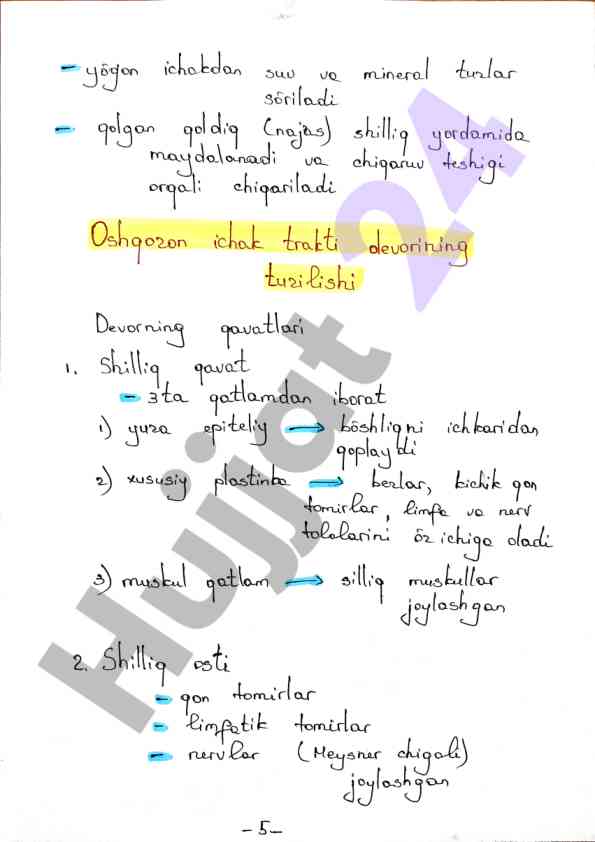 - yŏgon ichakdan suv va mineral tuzlar
sŏriladi
- qolgan qoldiq (najas) shilliq yordamida
maydalanadi va chiqaruv teshigi
orqali chiqariladi
Oshqozon ichak trakti devorining
tuzilishi
Devorning qavatlari
1. Shilliq qavat
- 3ta qatlamdan iborat
1) yuza epiteliy → bŏshliqni ichkaridan
qoplaydi
2) xususiy plastinka → bezlar, kichik qon
tomirlar, limfa va nerv
tolalarini ŏz ichiga oladi
3) muskul qatlam → silliq muskullar
joylashgan
2. Shilliq osti
- qon tomirlar
- limfatik tomirlar
- nervlar (Meysner chigali)
joylashgan
-5-
Hujjat 24